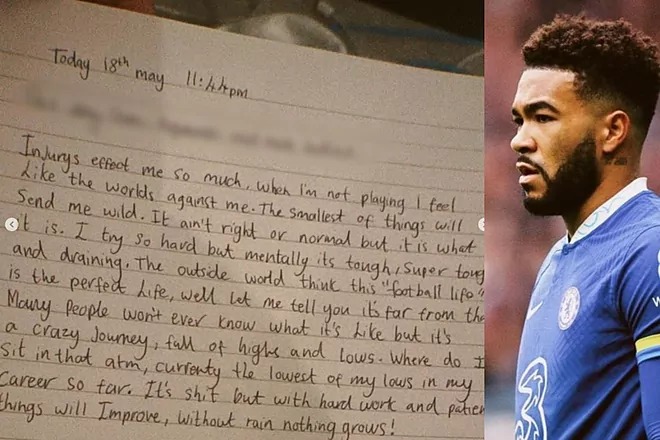 Today 18th may 11:44pm
Injurys effect me so much, when I'm not playing I feel
Like the worlds against me. The smallest of things will
Send me wild. It ain't right or normal but it is what
it is. I try so hard but mentally its tough, Super toug
and draining. The outside world think this "football life"
is the perfect Life, well let me tell you it's far from the
Many people won't ever know what it's Like but it's
a crazy Journey, full of highs and lows. Where do I
Sit in that atm, currently the lowest of my lows in my
Career so far. It's shit but with hard work and patien
things will Improve, without rain nothing grows!
3